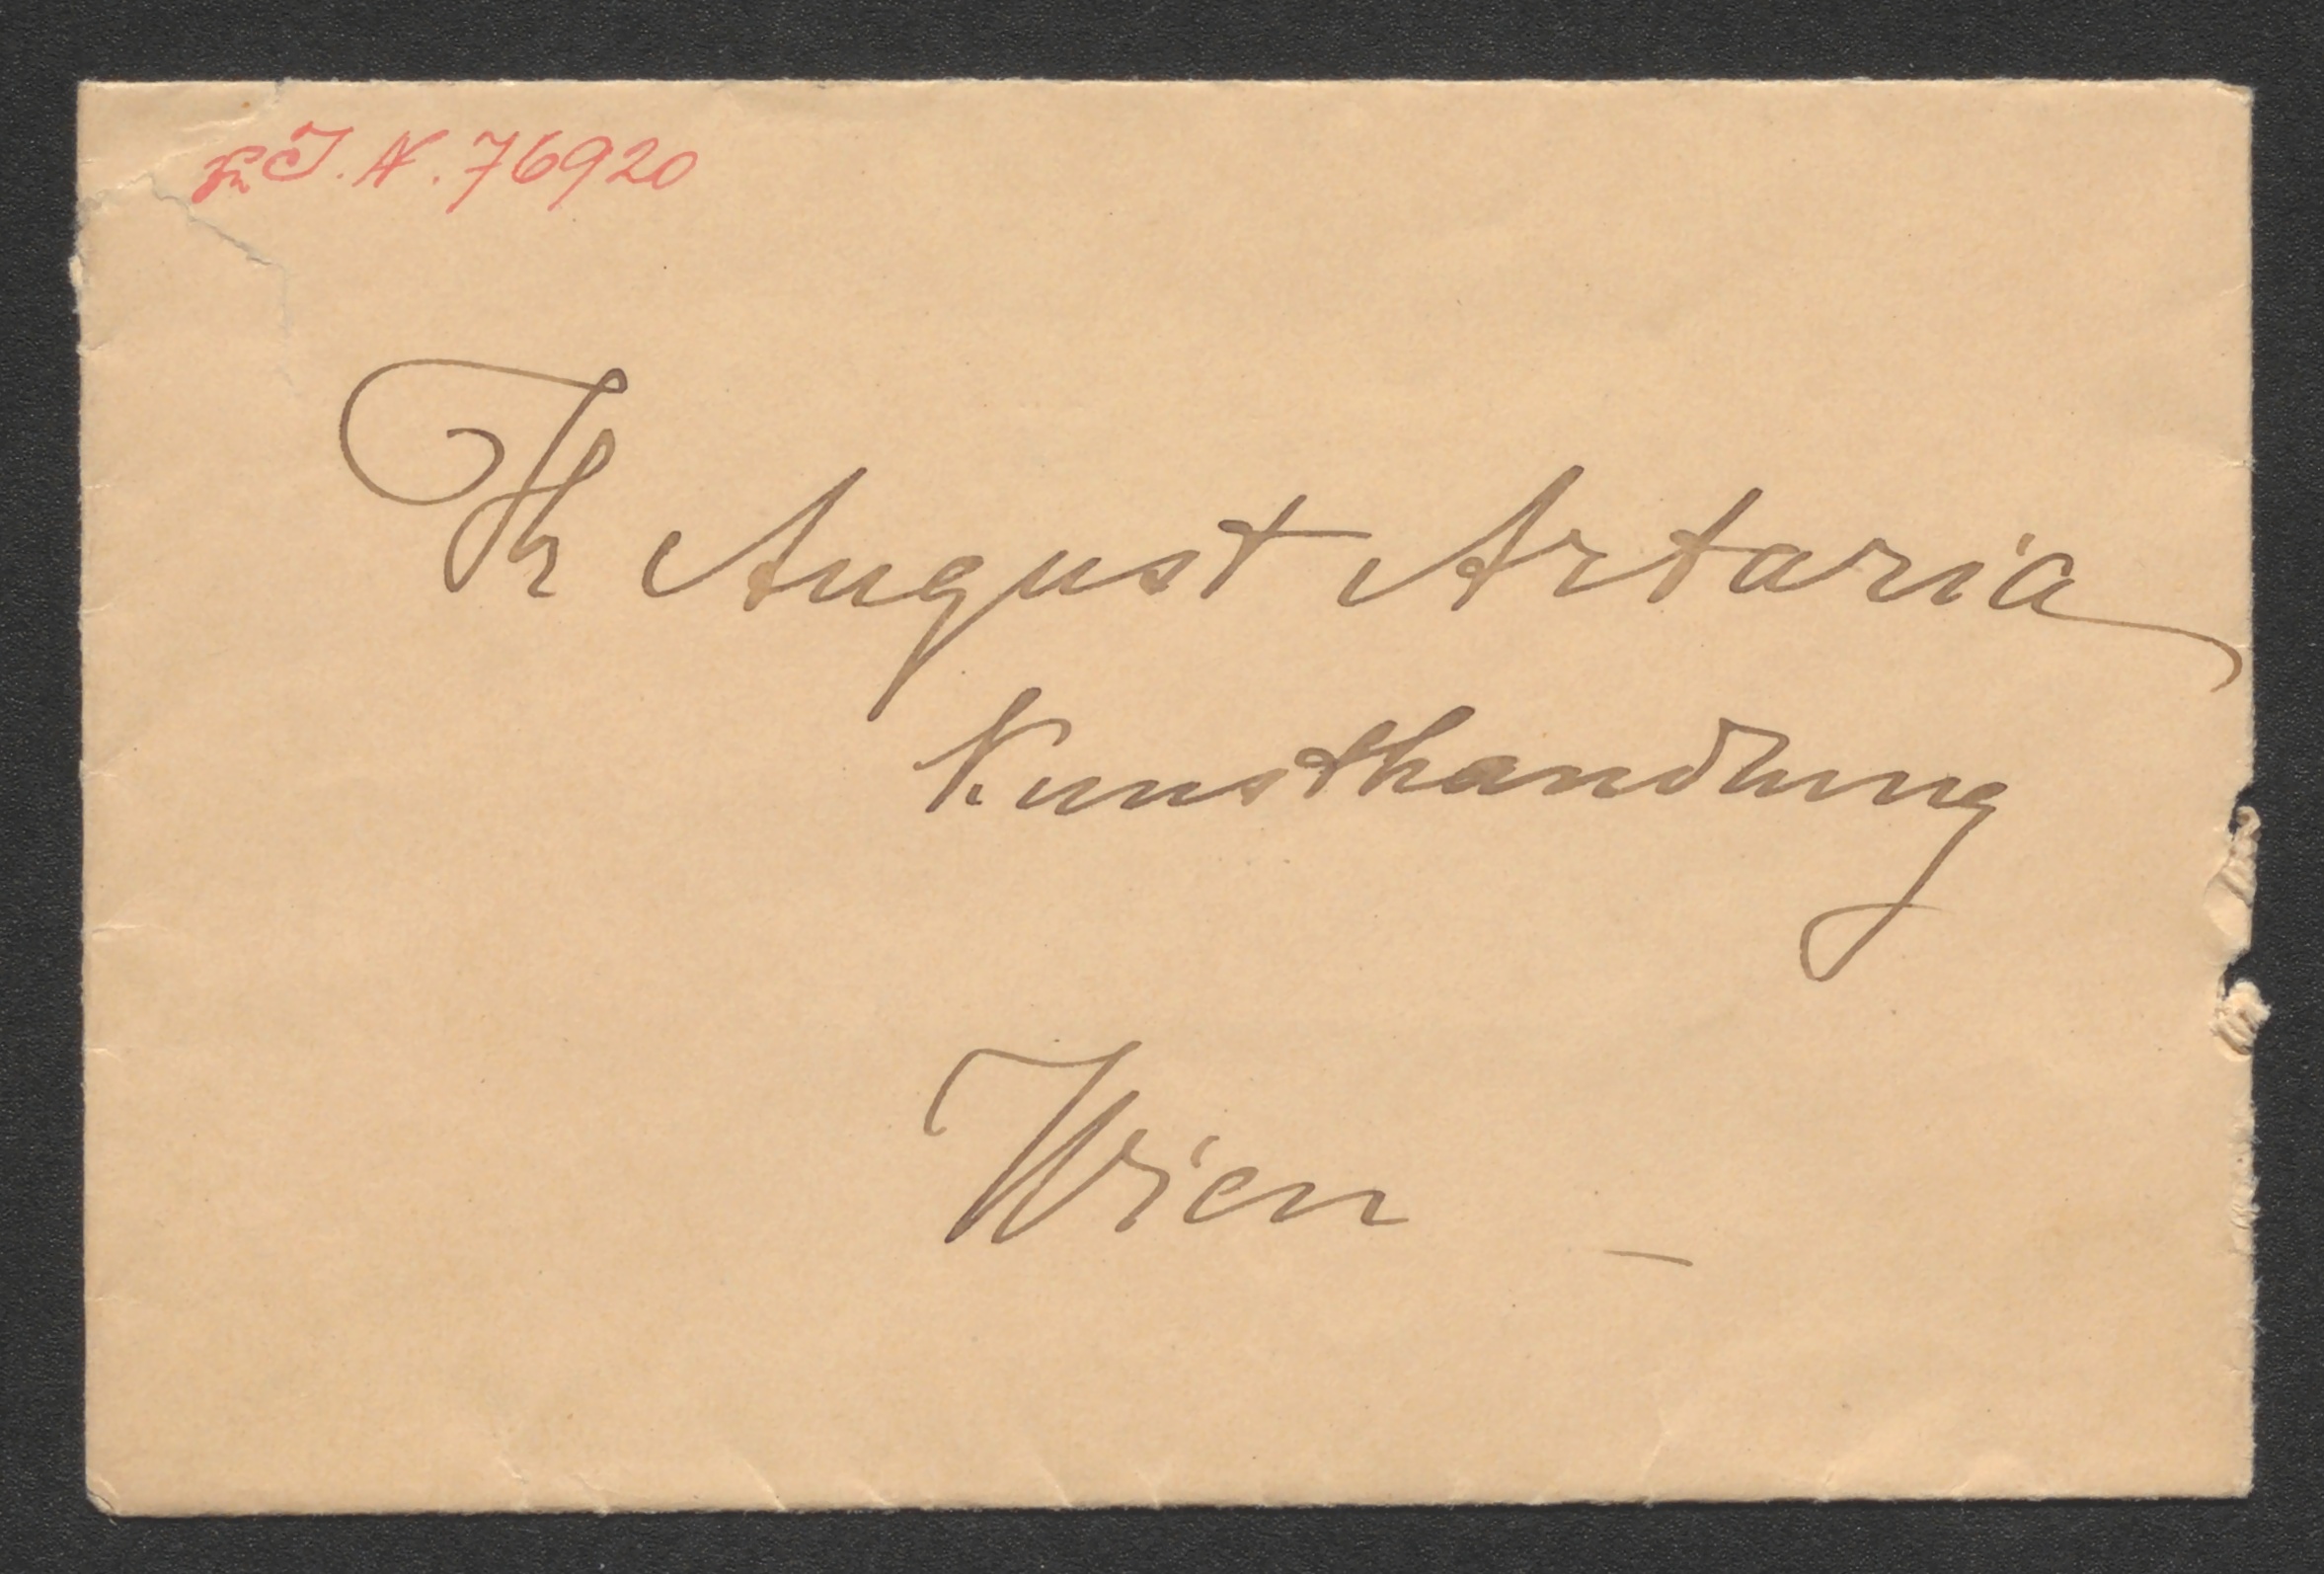 zu I.N. 76920
Hr August Artaria
Kunsthandlung
Wien